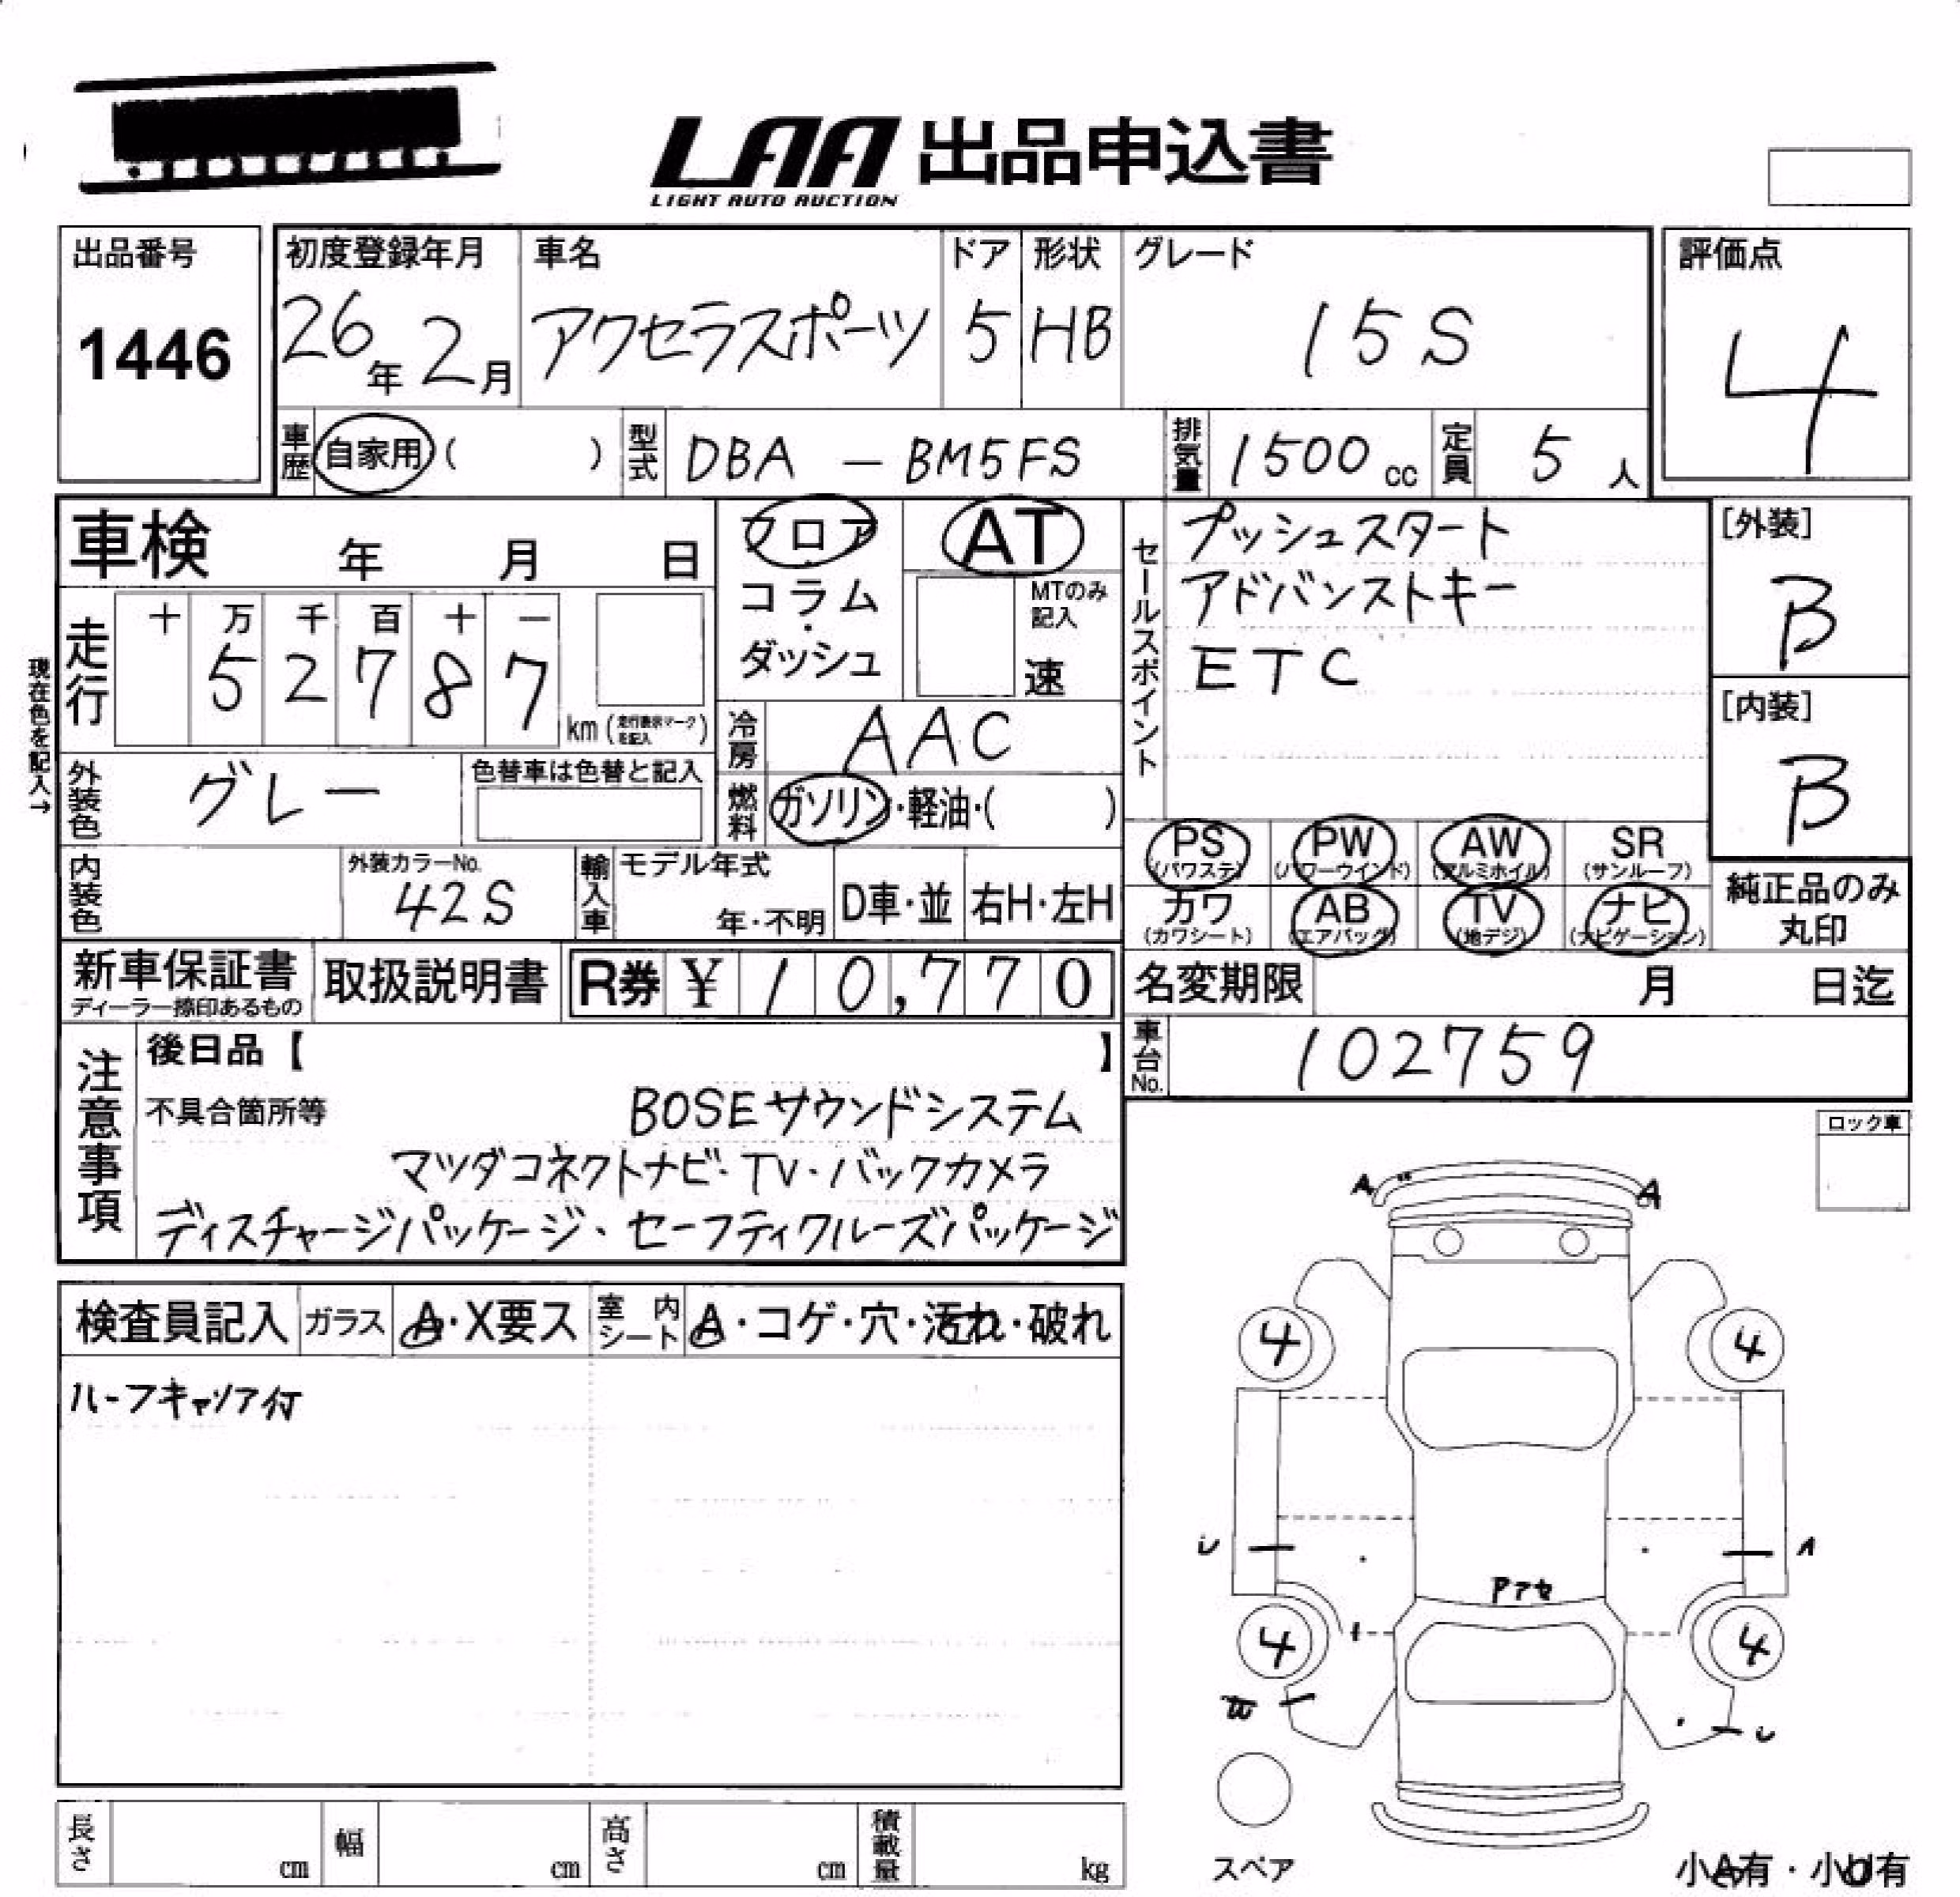 LAA 出品申込書
LIGHT AUTO AUCTION
出品番号
1446
初度登録年月 車名 ドア 形状 グレード
26年 2月 アクセラスポーツ 5 HB 15S
評価点
4
車歴 自家用 ( ) 型式 DBA — BM5FS 排気量 1500cc 定員 5人
車検 年 月 日
フロア
コラム
・
ダッシュ
AT
MTのみ
記入
速
セールスポイント
プッシュスタート
アドバンストキー
ETC
[外装]
B
[内装]
B
現在色を記入→
走行
十 万 千 百 十 一
5 2 7 8 7
km (走行表示マークを記入)
冷房 AAC
外装色 グレー 色替車は色替と記入
燃料 ガソリン・軽油・( )
PS PW AW SR
(パワステ) (パワーウインド) (アルミホイル) (サンルーフ)
カワ AB TV ナビ
(カワシート) (エアバッグ) (地デジ) (ナビゲーション)
純正品のみ
丸印
内装色
外装カラーNo.
42S
輸入車
モデル年式
年・不明
D車・並
右H・左H
新車保証書
ディーラー捺印あるもの
取扱説明書
R券 ¥ 10,770
名変期限 月 日迄
車台No. 102759
注意事項
後日品【 】
不具合箇所等 BOSEサウンドシステム
マツダコネクトナビ・TV・バックカメラ
ディスチャージパッケージ、セーフティクルーズパッケージ
ロック車
検査員記入 ガラス A・X要ス 室内シート A・コゲ・穴・汚れ・破れ
ルーフキャリア付
A A
4 4
アアセ
4 4
スペア
長さ cm 幅 cm 高さ cm 積載量 kg
小A有・小U有